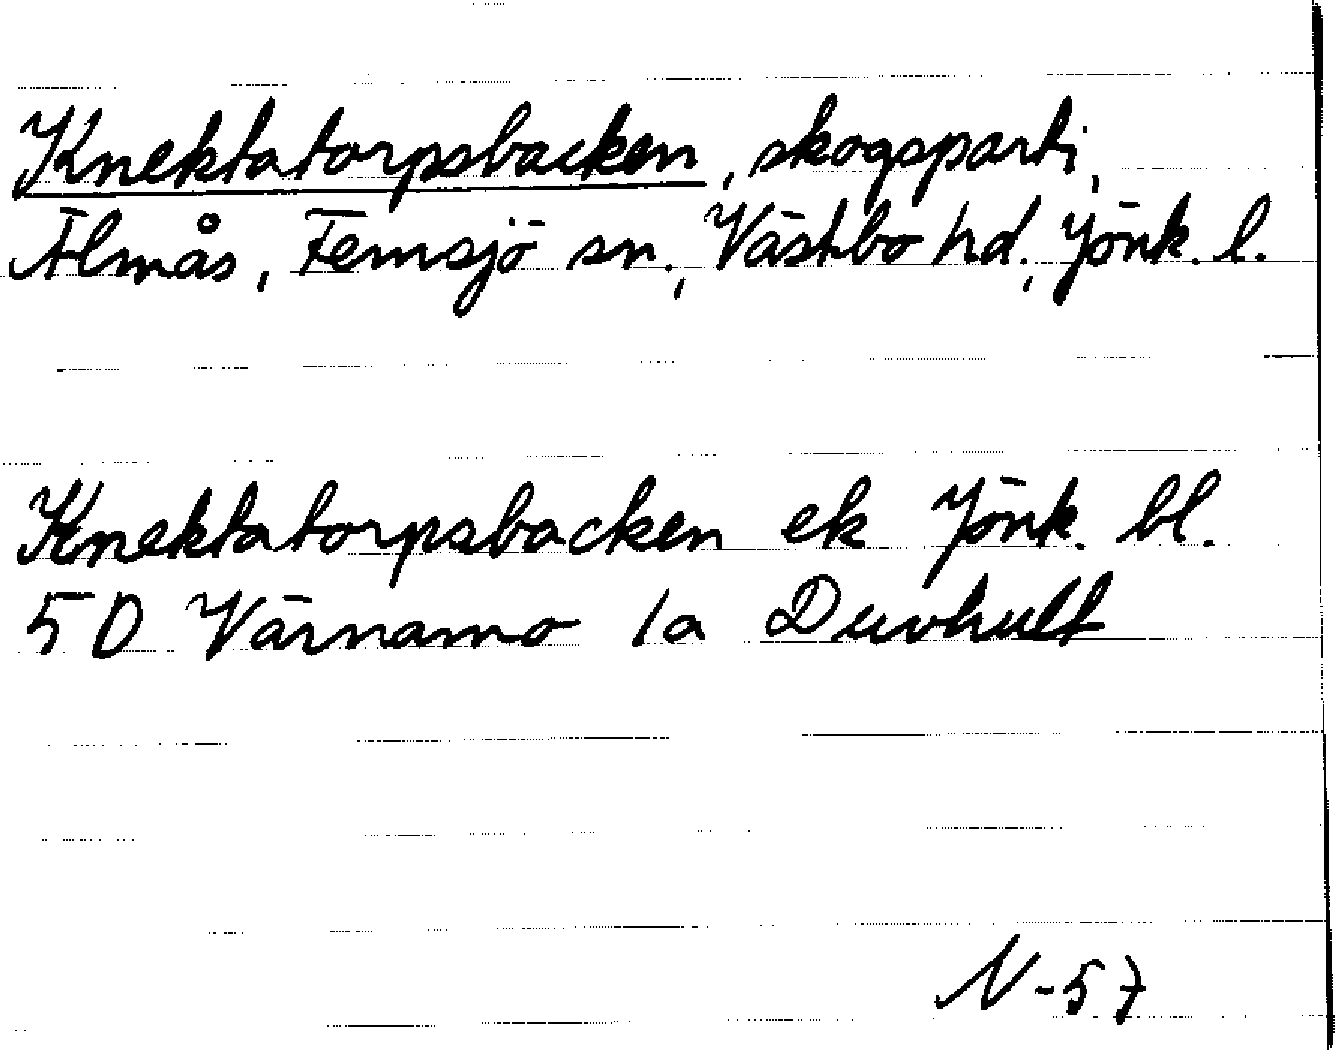 Knektatorpsbacken, skogsparti,
Älmås, Femsjö sn., Västbo hd., Jönk. l.
Knektatorpsbacken ek Jönk. bl.
50 Värnamo 1a Duvhult
N-57